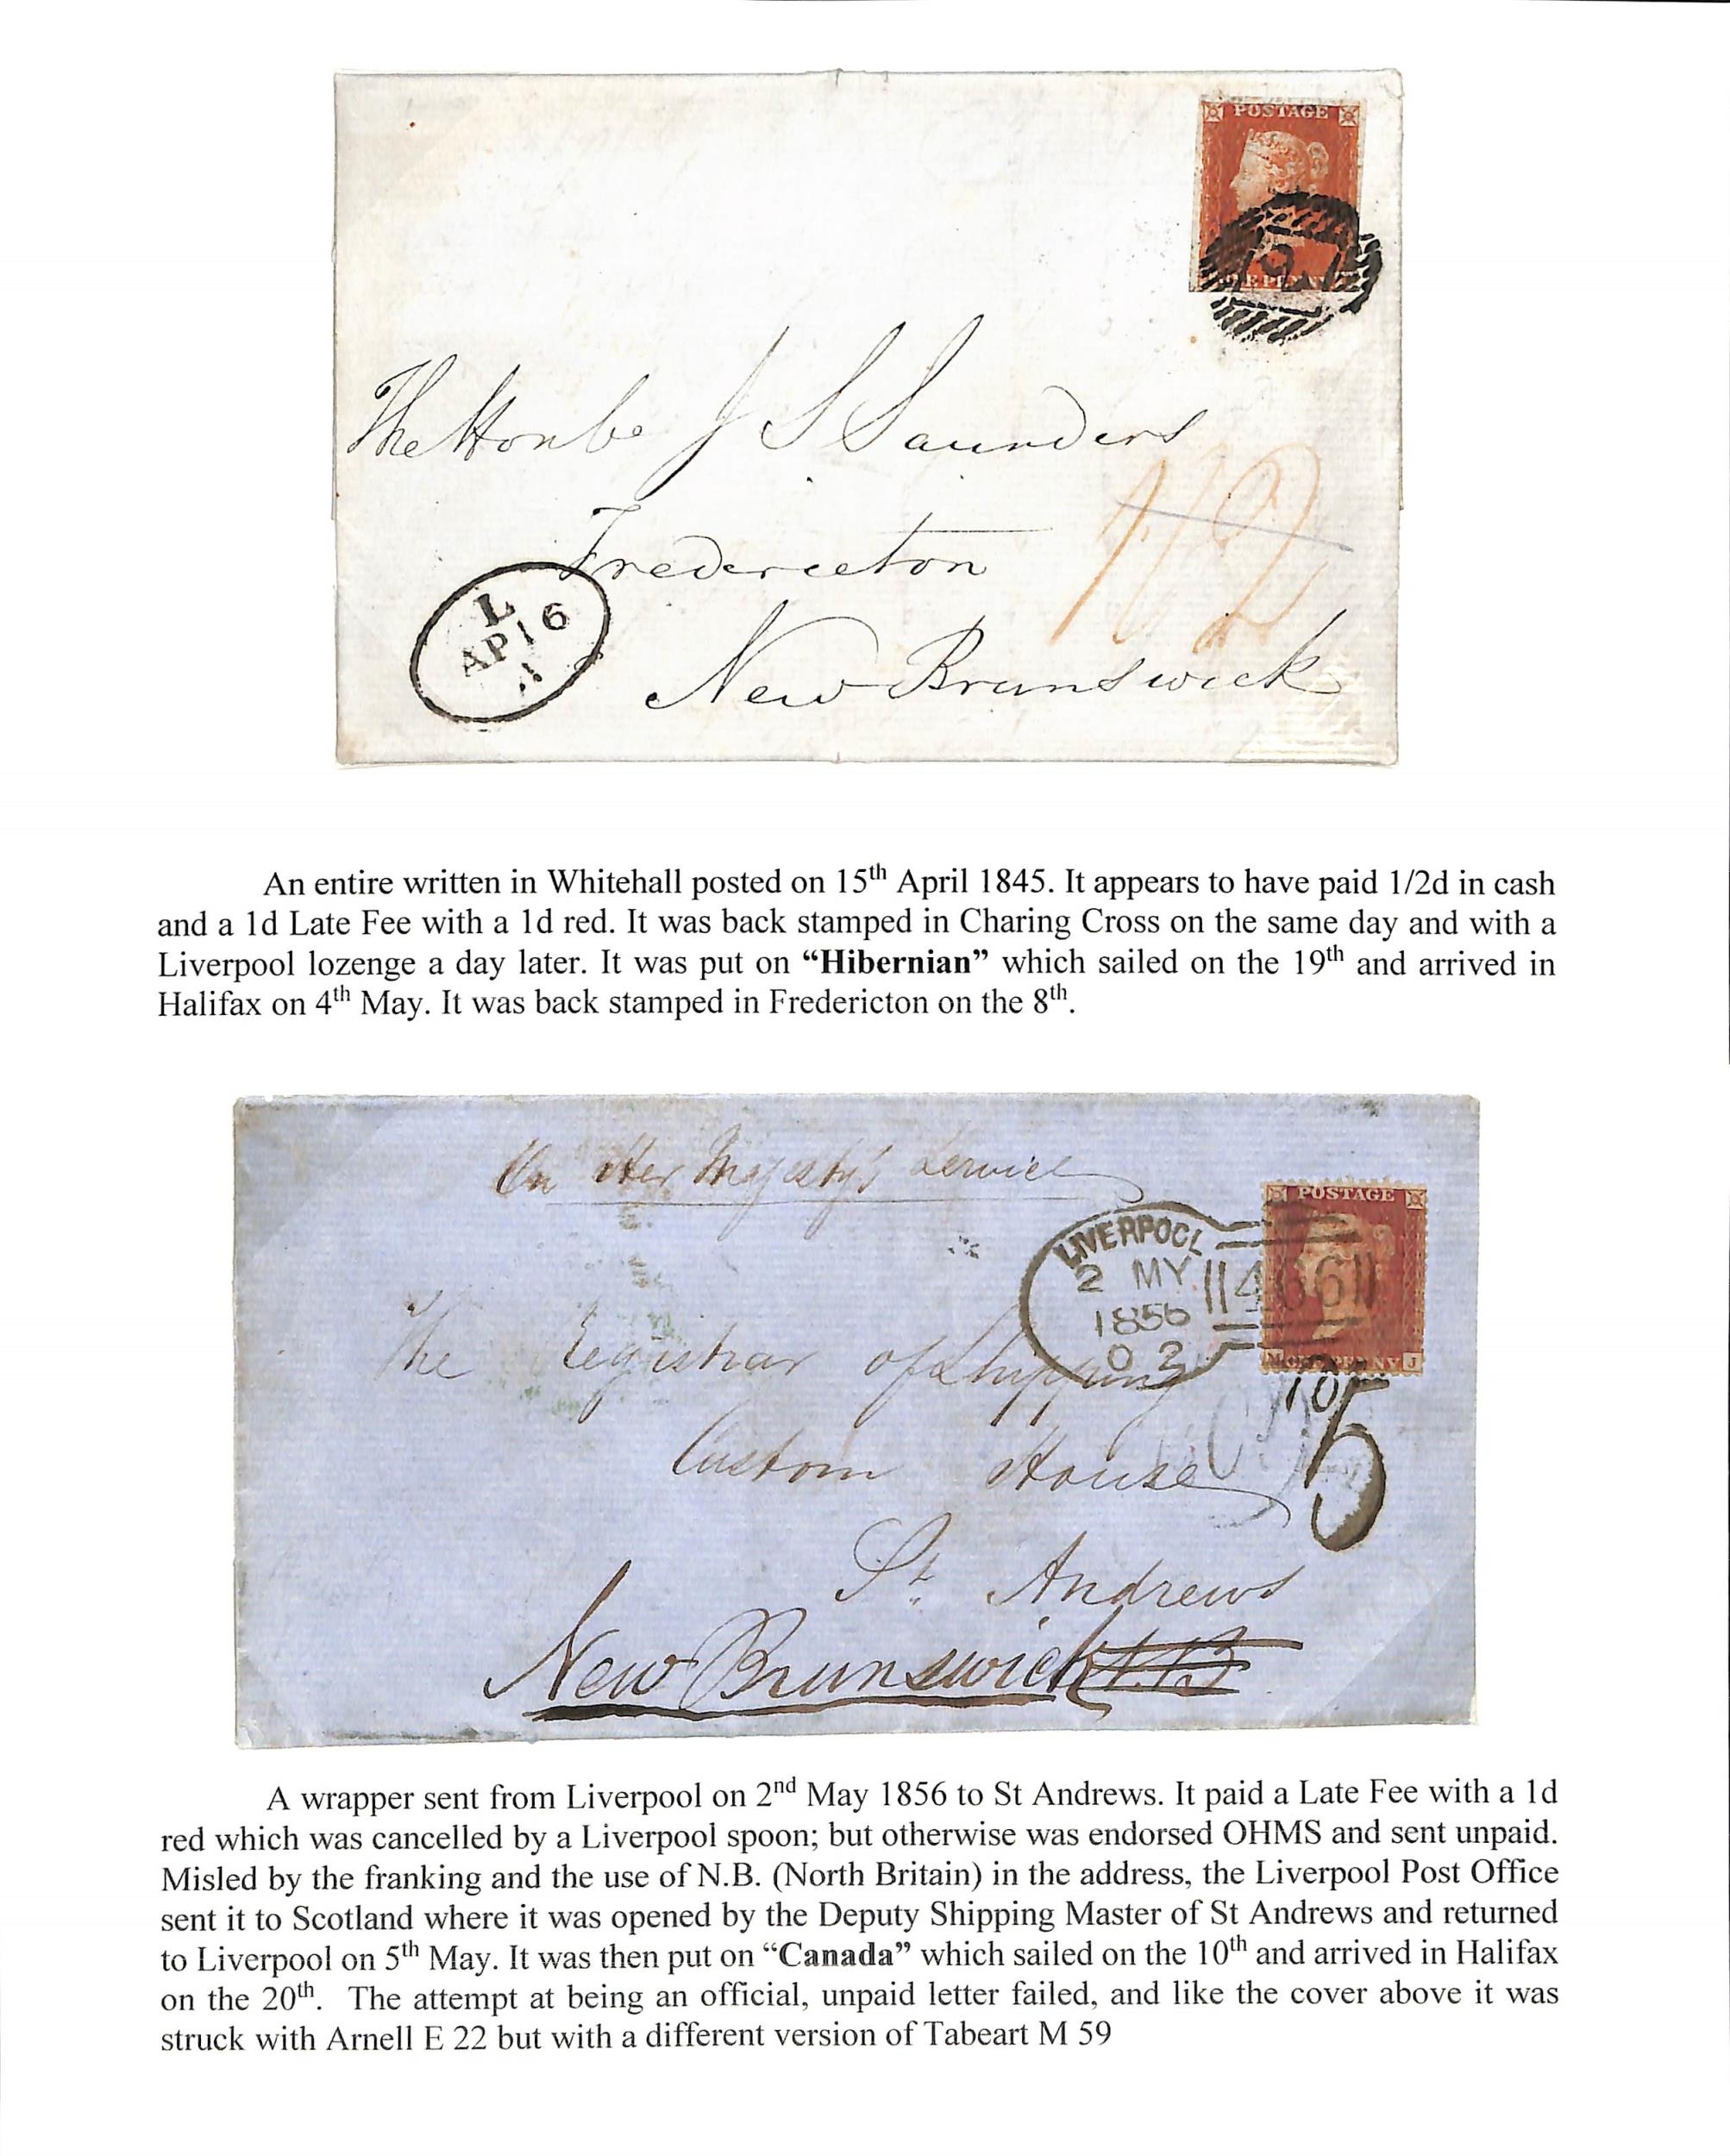 POSTAGE
The Honble J S Saunders
Fredericton
1/2
New Brunswick
L
AP 16
A
An entire written in Whitehall posted on 15th April 1845. It appears to have paid 1/2d in cash
and a 1d Late Fee with a 1d red. It was back stamped in Charing Cross on the same day and with a
Liverpool lozenge a day later. It was put on “Hibernian” which sailed on the 19th and arrived in
Halifax on 4th May. It was back stamped in Fredericton on the 8th.
On Her Majesty's Service
POSTAGE
LIVERPOOL
2 MY
1856
O 2
466
M ONE PENNY J
The Registrar of Shipping
10
5
Custom House
St. Andrews
New Brunswick N.B
A wrapper sent from Liverpool on 2nd May 1856 to St Andrews. It paid a Late Fee with a 1d
red which was cancelled by a Liverpool spoon; but otherwise was endorsed OHMS and sent unpaid.
Misled by the franking and the use of N.B. (North Britain) in the address, the Liverpool Post Office
sent it to Scotland where it was opened by the Deputy Shipping Master of St Andrews and returned
to Liverpool on 5th May. It was then put on “Canada” which sailed on the 10th and arrived in Halifax
on the 20th. The attempt at being an official, unpaid letter failed, and like the cover above it was
struck with Arnell E 22 but with a different version of Tabeart M 59